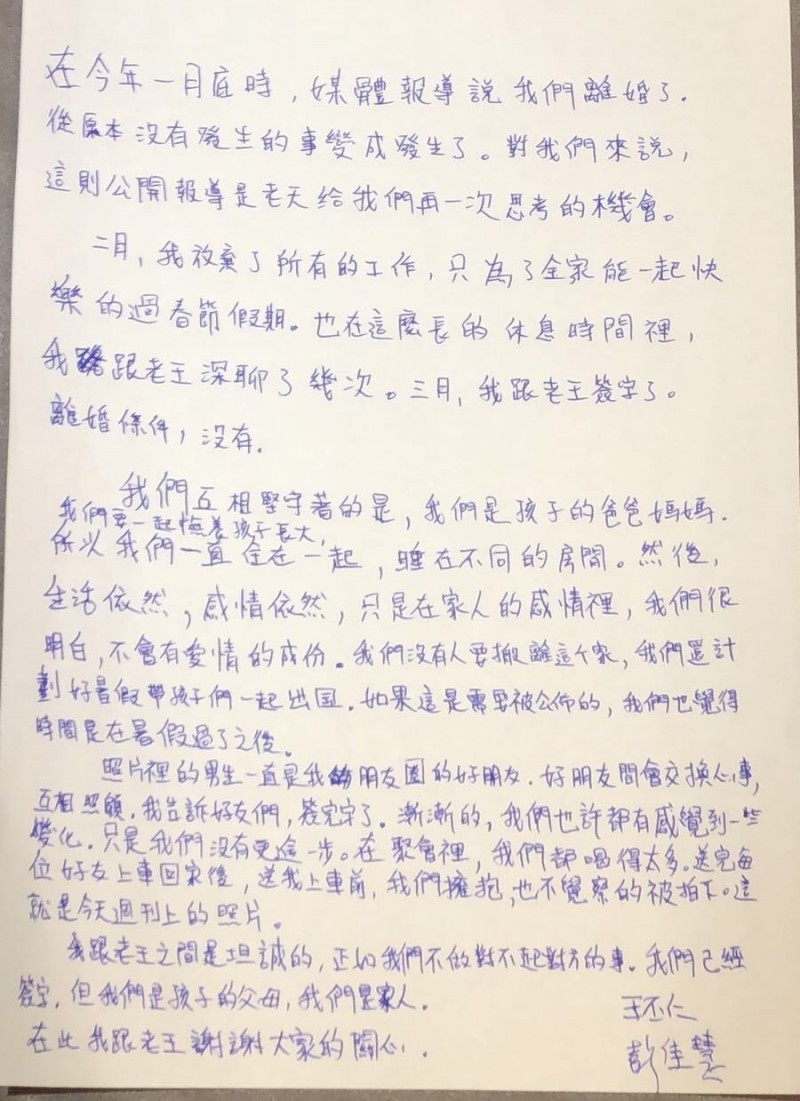 在今年一月底時，媒體報導說 我們離婚了．
從原本沒有發生的事變成發生了。對我們來說，
這則公開報導是老天給我們再一次思考的機會。
二月，我放棄了所有的工作，只為了全家能一起快
樂的過春節假期。也在這麼長的休息時間裡，
我跟老王深聊了幾次。三月，我跟老王簽字了。
離婚條件，沒有．
我們互相堅守著的是，我們是孩子的爸爸媽媽．
我們要一起撫養孩子長大，
所以我們一直住在一起，睡在不同的房間。然後，
生活依然，感情依然，只是在家人的感情裡，我們很
明白，不會有愛情的成份。我們沒有人要搬離這个家，我們還計
劃好暑假帶孩子們一起出国．如果這是需要被公佈的，我們也覺得
時間是在暑假過了之後。
照片裡的男生一直是我的朋友圈的好朋友．好朋友間會交換心事，
互相照顧．我告訴好友們，簽完字了。漸漸的，我們也許都有感覺到一些
變化．只是我們沒有更進一步。在聚會裡，我們都喝得太多。送完每
位好友上車回家後，送我上車前，我們擁抱，也不覺察的被拍下。這
就是今天週刊上的照片。
我跟老王之間是坦誠的，正如我們不做對不起對方的事。我們已經
簽字，但我們是孩子的父母，我們是家人．
王丕仁
在此我跟老王謝謝大家的關心．
彭佳慧